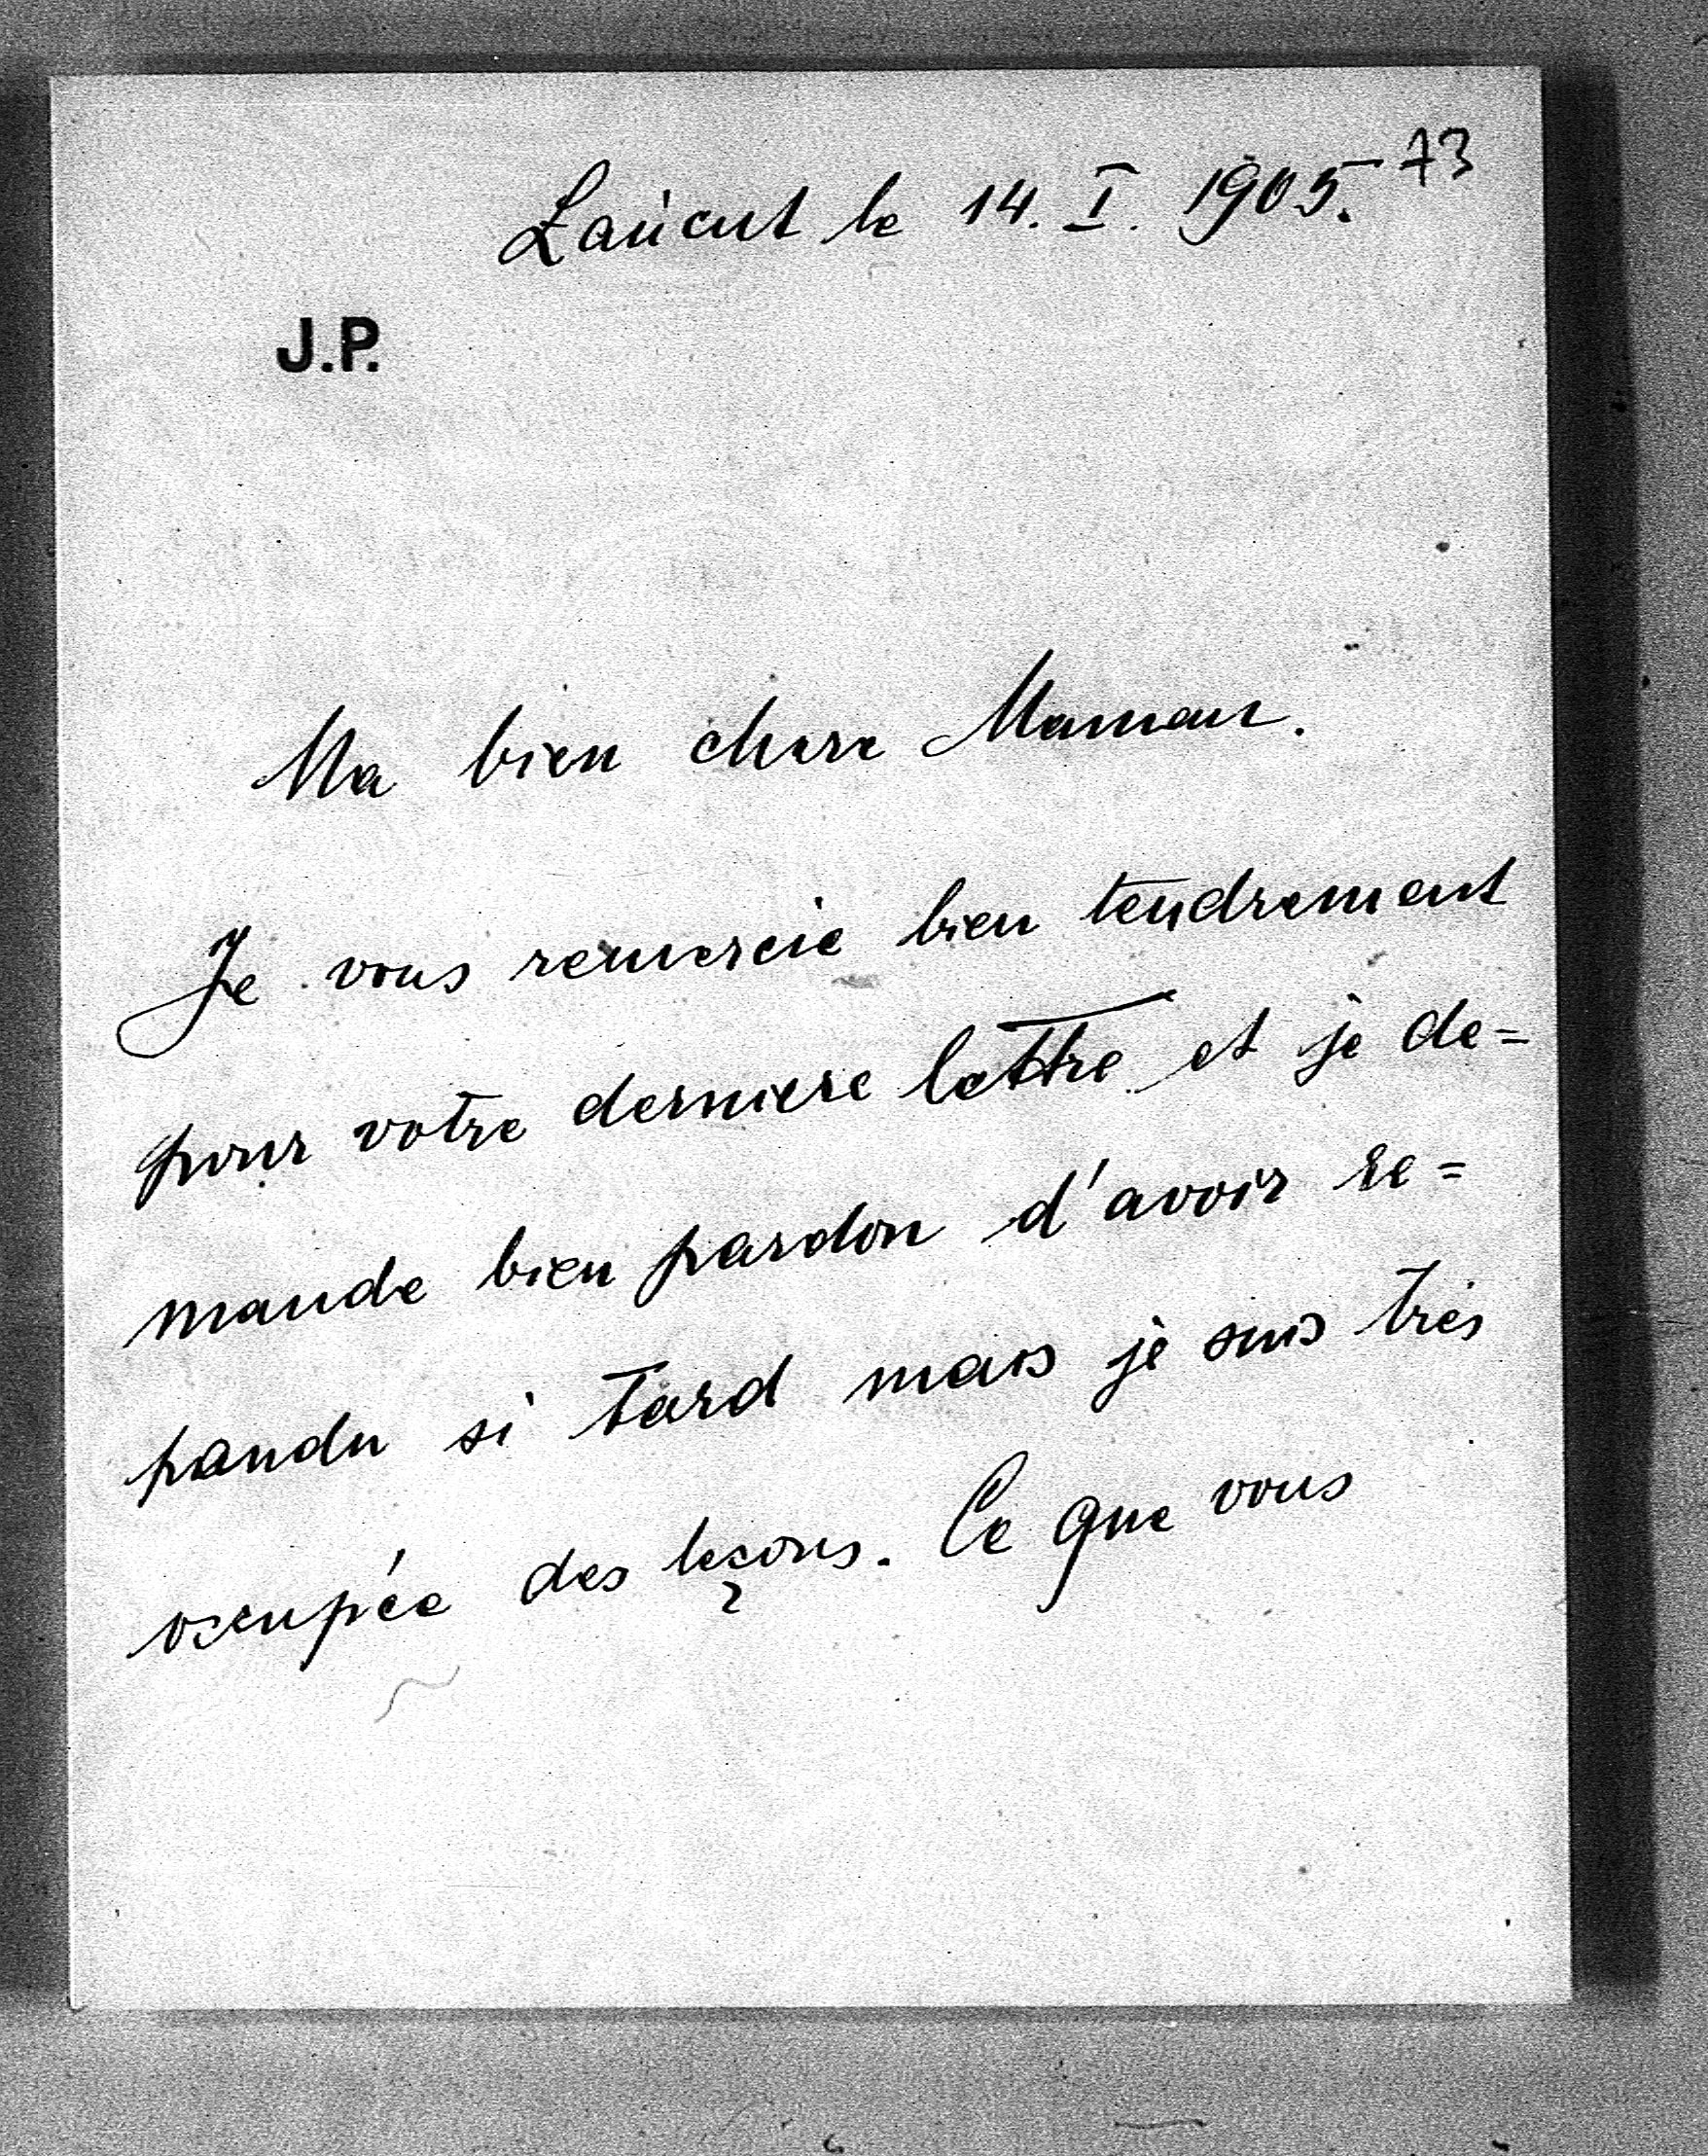 Łańcut le 14. I. 1905. 73
J.P.
Ma bien chere Maman.
Je vous remercie bien tendrement
pour votre derniere lettre et je de=
mande bien pardon d'avoir re=
pandu si tard mais je suis très
occupée des leçons. Ce que vous